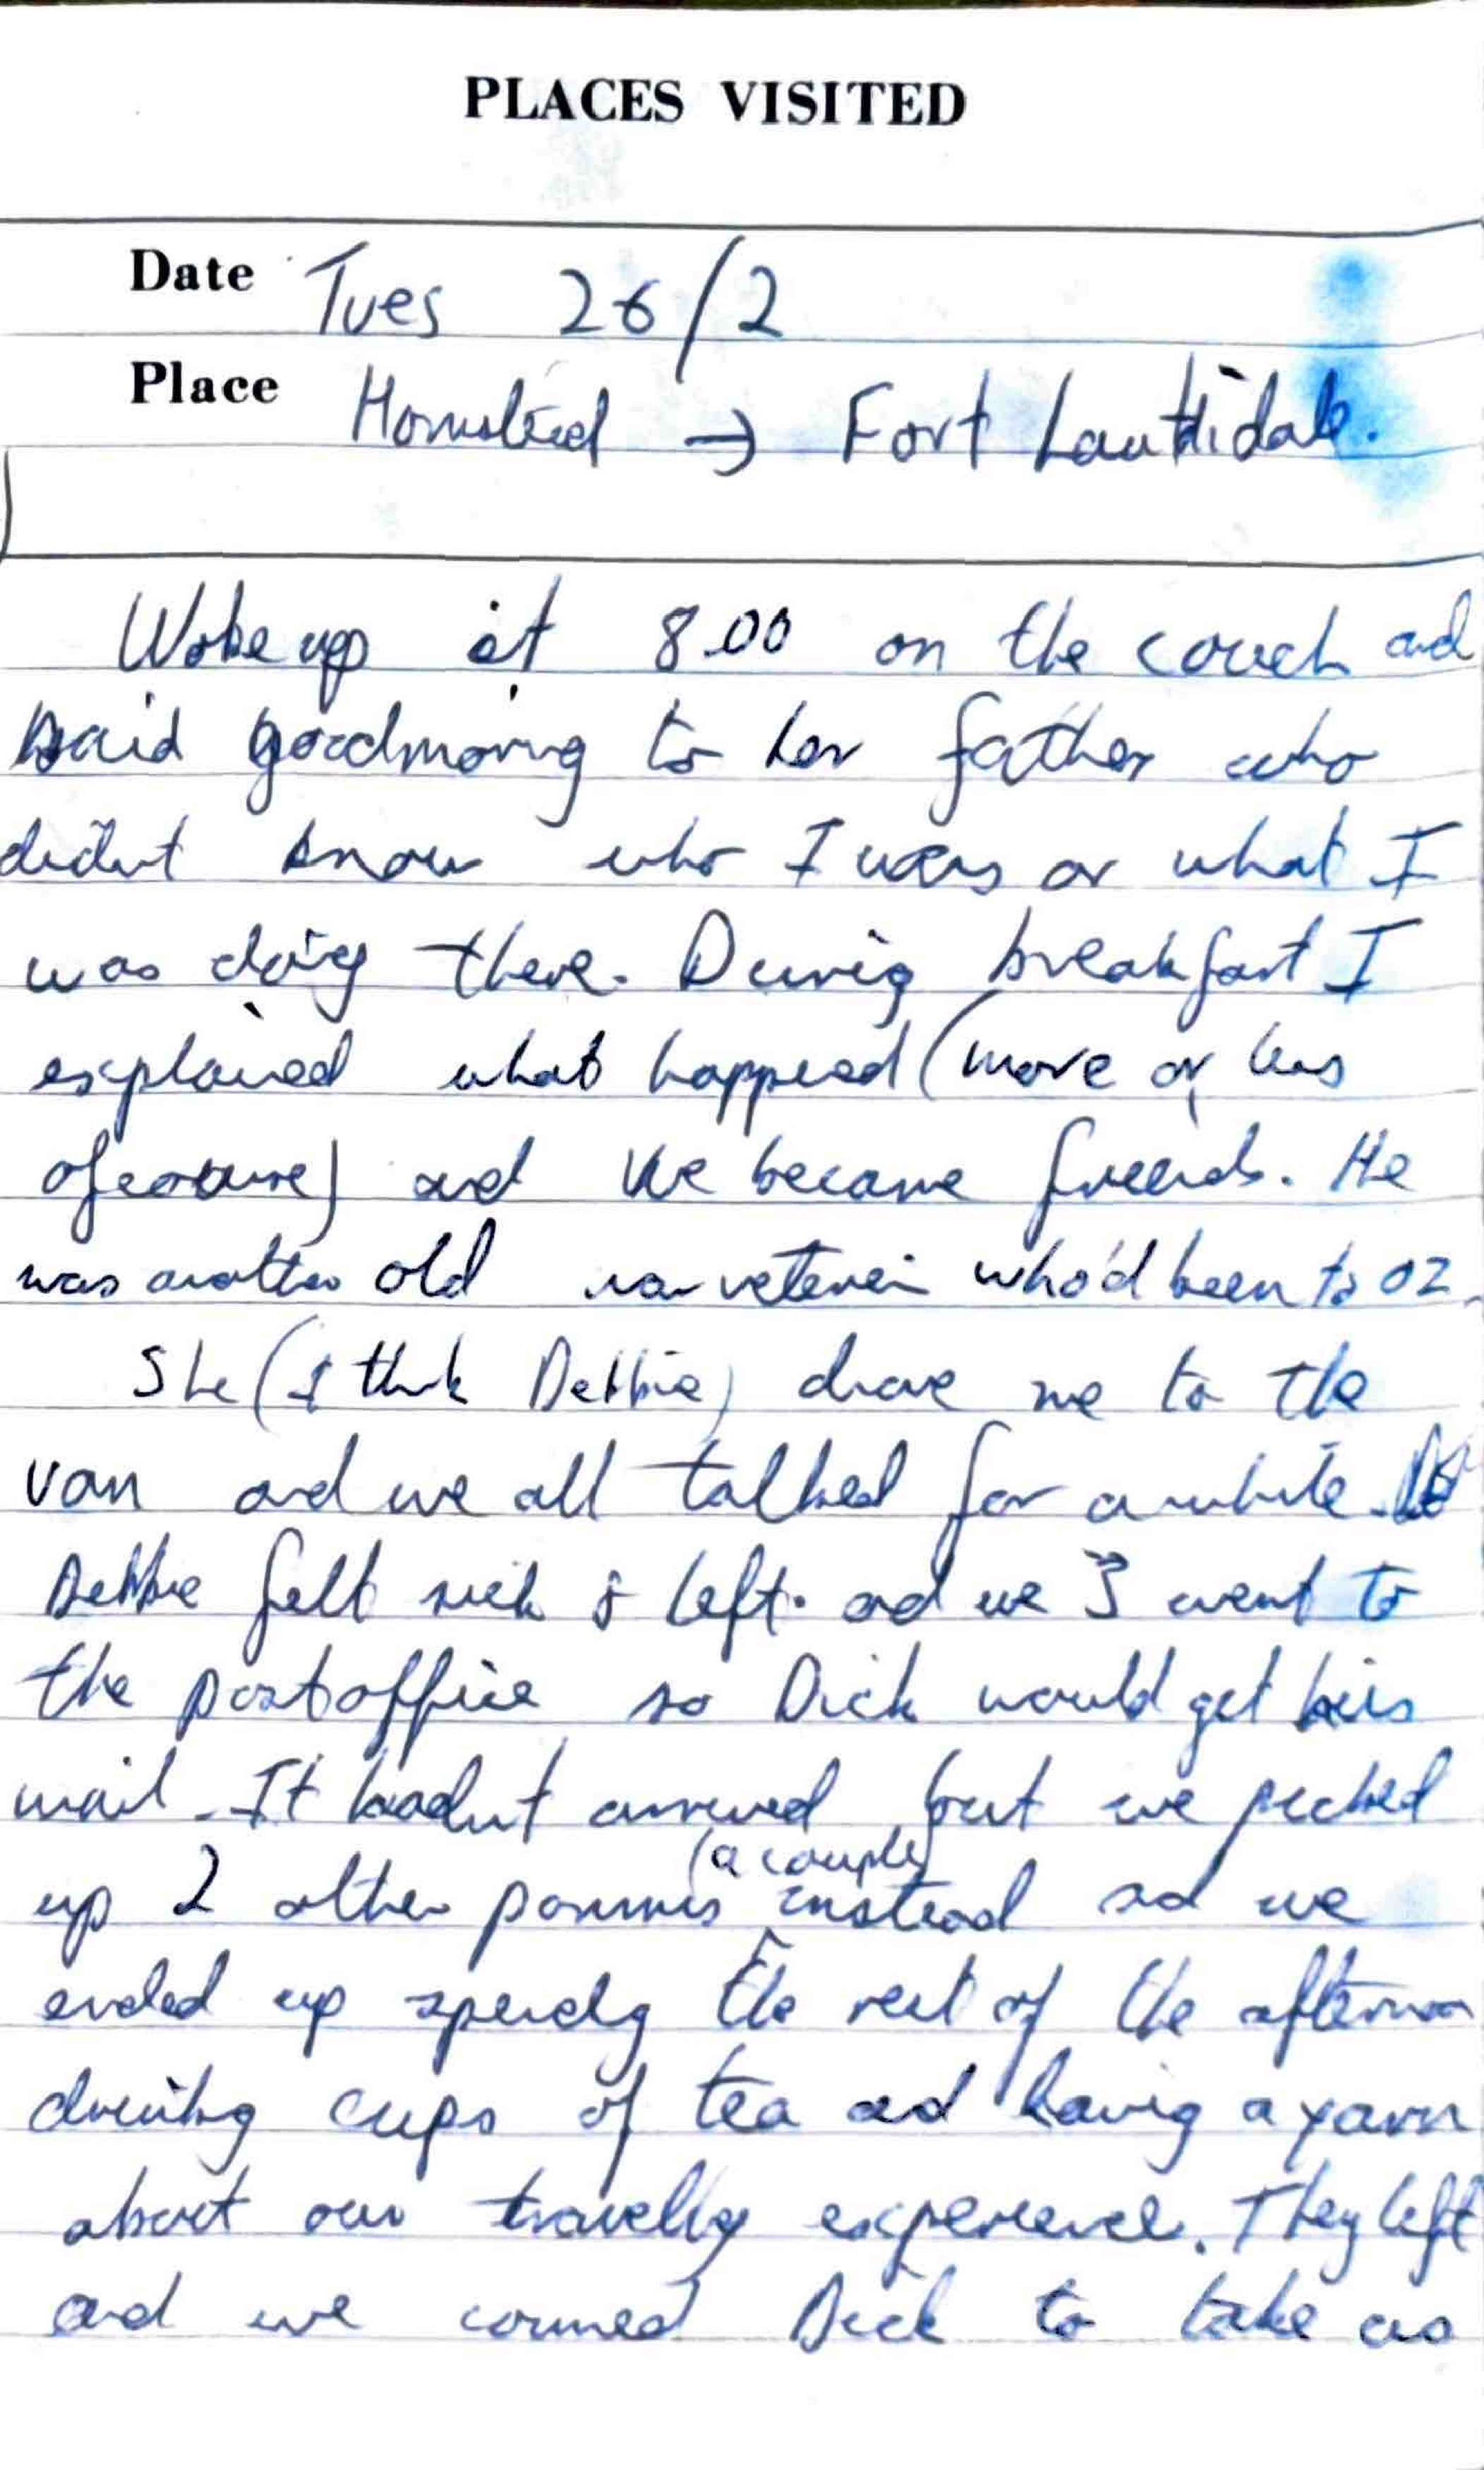 PLACES VISITED
Date Tues 26/2
Place Homstead → Fort Lautidale.
Woke up at 8.00 on the couch and
said goodmornig to her father who
didnt know who I was or what I
was doig there. Durig breakfast I
explained what happened (more or less
ofcourse) and we became friends. He
was another old war veteran who'd been to OZ.
She (I think Debbie) drove me to the
van and we all talked for awhile.
Debbie felt sick & left. and we 3 went to
the postoffice so Dick would get his
mail. It hadnt arrived but we picked
up 2 other pommis (a couple) instead and we
ended up spendg the rest of the afternoon
drinkg cups of tea and havig a yarn
about our travellg experience. They left
and we conned Dick to take us